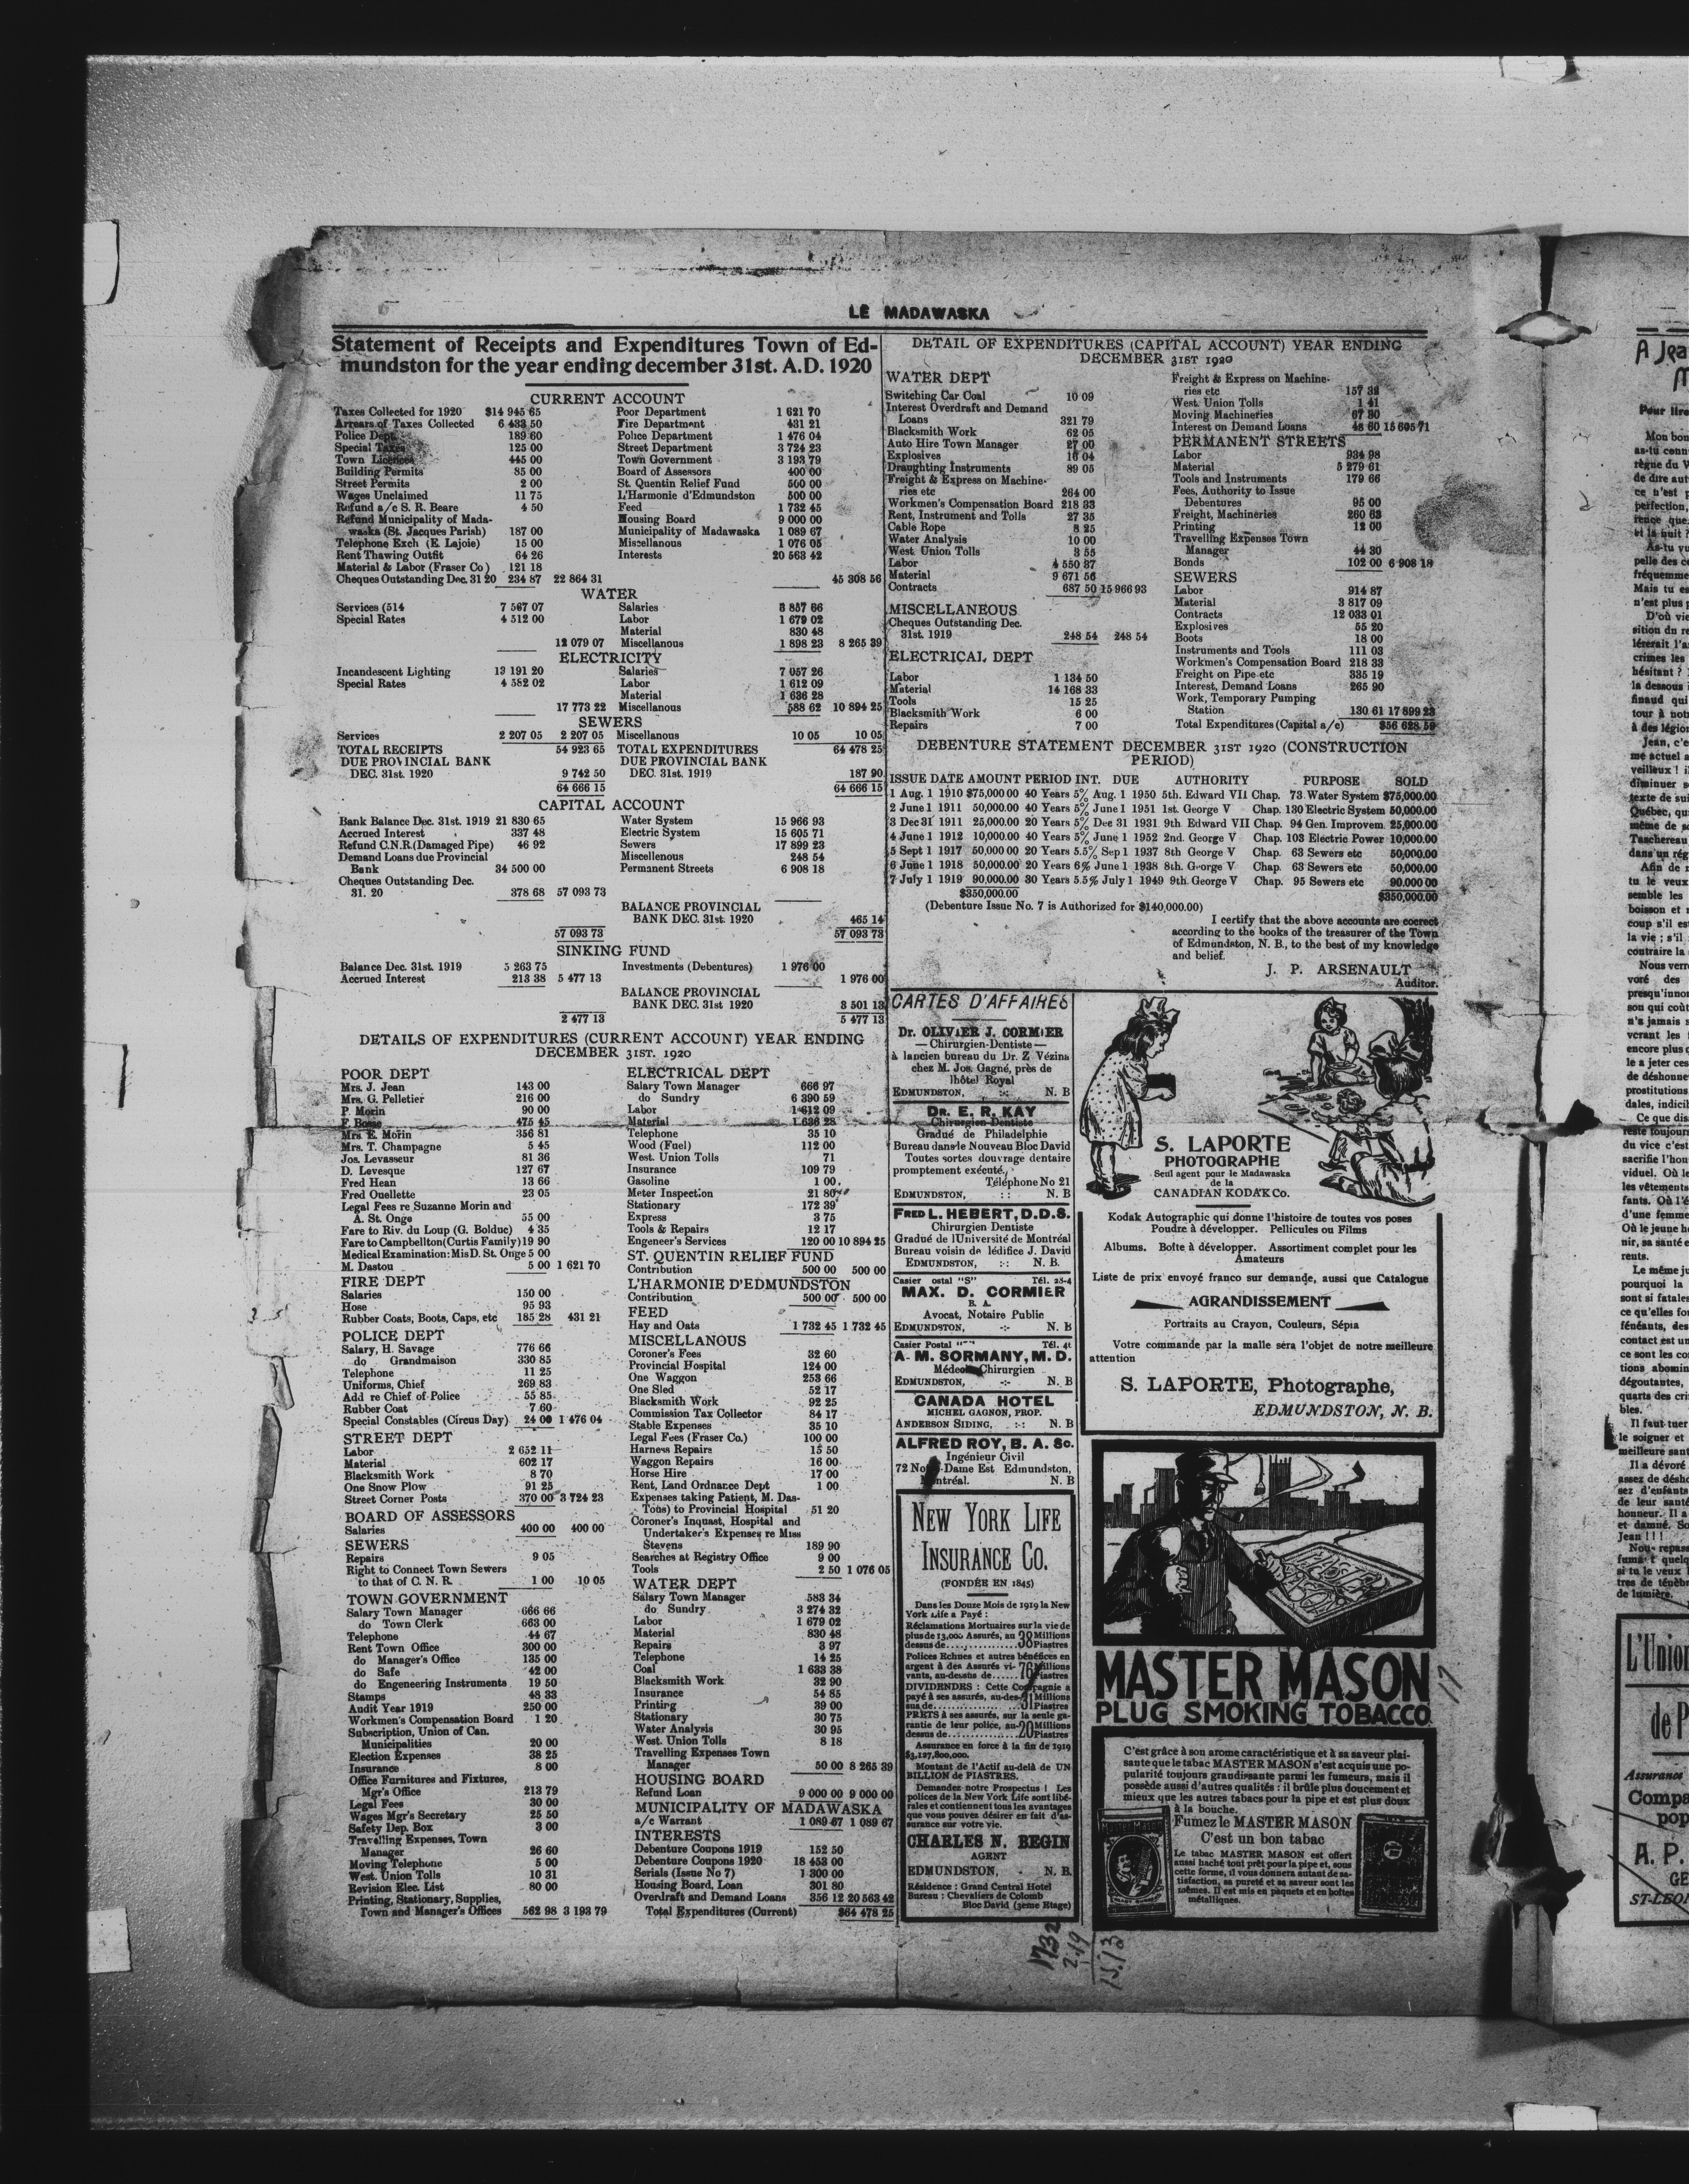 LE MADAWASKA
Statement of Receipts and Expenditures Town of Ed-
mundston for the year ending december 31st. A.D. 1920
CURRENT ACCOUNT
Taxes Collected for 1920 $14 945 65
Arrears of Taxes Collected 6 433 50
Police Dept. 189 60
Special Taxes 125 00
Town Licences 445 00
Building Permits 85 00
Street Permits 2 00
Wages Unclaimed 11 75
Refund a/c S. R. Beare 4 50
Refund Municipality of Mada-
waska (St. Jacques Parish) 187 00
Telephone Exch (E. Lajoie) 15 00
Rent Thawing Outfit 64 26
Material & Labor (Fraser Co) 121 18
Cheques Outstanding Dec. 31 20 234 87 22 864 31
Poor Department 1 621 70
Fire Department 431 21
Police Department 1 476 04
Street Department 3 724 23
Town Government 3 193 79
Board of Assessors 400 00
St. Quentin Relief Fund 500 00
L'Harmonie d'Edmundston 500 00
Feed 1 732 45
Housing Board 9 000 00
Municipality of Madawaska 1 089 67
Miscellanous 1 076 05
Interests 20 563 42
45 308 56
WATER
Services (514 7 567 07
Special Rates 4 512 00
12 079 07
Salaries 3 857 66
Labor 1 679 02
Material 830 48
Miscellanous 1 898 23 8 265 39
ELECTRICITY
Incandescent Lighting 13 191 20
Special Rates 4 582 02
17 773 22
Salaries 7 057 26
Labor 1 612 09
Material 1 636 28
Miscellanous 588 62 10 894 25
SEWERS
Services 2 207 05 2 207 05 Miscellanous 10 05 10 05
TOTAL RECEIPTS 54 923 65 TOTAL EXPENDITURES 64 478 25
DUE PROVINCIAL BANK DUE PROVINCIAL BANK
DEC. 31st. 1920 9 742 50 DEC. 31st. 1919 187 90
64 666 15 64 666 15
CAPITAL ACCOUNT
Bank Balance Dec. 31st. 1919 21 830 65
Accrued Interest 337 48
Refund C.N.R.(Damaged Pipe) 46 92
Demand Loans due Provincial
Bank 34 500 00
Cheques Outstanding Dec.
31. 20 378 68 57 093 73
Water System 15 966 93
Electric System 15 605 71
Sewers 17 899 23
Miscellenous 248 54
Permanent Streets 6 908 18
BALANCE PROVINCIAL
BANK DEC. 31st. 1920 465 14
57 093 73 57 093 73
SINKING FUND
Balance Dec. 31st. 1919 5 263 75 Investments (Debentures) 1 976 00
Accrued Interest 213 38 5 477 13 1 976 00
BALANCE PROVINCIAL
BANK DEC. 31st 1920 3 501 13
2 477 13 5 477 13
DETAILS OF EXPENDITURES (CURRENT ACCOUNT) YEAR ENDING
DECEMBER 31ST. 1920
POOR DEPT
Mrs. J. Jean 143 00
Mrs. G. Pelletier 216 00
P. Morin 90 00
F. Bosse 475 45
Mrs. E. Morin 356 81
Mrs. T. Champagne 5 45
Jos. Levasseur 81 36
D. Levesque 127 67
Fred Hean 13 66
Fred Ouellette 23 05
Legal Fees re Suzanne Morin and
A. St. Onge 55 00
Fare to Riv. du Loup (G. Bolduc) 4 35
Fare to Campbellton(Curtis Family)19 90
Medical Examination: MisD. St. Onge 5 00
M. Dastou 5 00 1 621 70
FIRE DEPT
Salaries 150 00
Hose 95 93
Rubber Coats, Boots, Caps, etc 185 28 431 21
POLICE DEPT
Salary, H. Savage 776 66
do Grandmaison 330 85
Telephone 11 25
Uniforms, Chief 269 83
Add re Chief of Police 55 85
Rubber Coat 7 60
Special Constables (Circus Day) 24 00 1 476 04
STREET DEPT
Labor 2 652 11
Material 602 17
Blacksmith Work 8 70
One Snow Plow 91 25
Street Corner Posts 370 00 3 724 23
BOARD OF ASSESSORS
Salaries 400 00 400 00
SEWERS
Repairs 9 05
Right to Connect Town Sewers
to that of C. N. R 1 00 10 05
TOWN GOVERNMENT
Salary Town Manager 666 66
do Town Clerk 663 00
Telephone 44 67
Rent Town Office 300 00
do Manager's Office 135 00
do Safe 42 00
do Engeneering Instruments 19 50
Stamps 48 33
Audit Year 1919 250 00
Workmen's Compensation Board 1 20
Subscription, Union of Can.
Municipalities 20 00
Election Expenses 38 25
Insurance 8 00
Office Furnitures and Fixtures,
Mgr's Office 213 79
Legal Fees 30 00
Wages Mgr's Secretary 25 50
Safety Dep. Box 3 00
Travelling Expenses, Town
Manager 26 60
Moving Telephone 5 00
West. Union Tolls 10 31
Revision Elec. List 80 00
Printing, Stationary, Supplies,
Town and Manager's Offices 562 98 3 193 79
ELECTRICAL DEPT
Salary Town Manager 666 97
do Sundry 6 390 59
Labor 1 612 09
Material 1 636 28
Telephone 35 10
Wood (Fuel) 112 00
West. Union Tolls 71
Insurance 109 79
Gasoline 1 00
Meter Inspection 21 80
Stationary 172 39
Express 3 75
Tools & Repairs 12 17
Engeneer's Services 120 00 10 894 25
ST. QUENTIN RELIEF FUND
Contribution 500 00 500 00
L'HARMONIE D'EDMUNDSTON
Contribution 500 00 500 00
FEED
Hay and Oats 1 732 45 1 732 45
MISCELLANOUS
Coroner's Fees 32 60
Provincial Hospital 124 00
One Waggon 253 66
One Sled 52 17
Blacksmith Work 92 25
Commission Tax Collector 84 17
Stable Expenses 35 10
Legal Fees (Fraser Co.) 100 00
Harness Repairs 15 50
Waggon Repairs 16 00
Horse Hire 17 00
Rent, Land Ordnance Dept 1 00
Expenses taking Patient, M. Das-
Tous) to Provincial Hospital 51 20
Coroner's Inquast, Hospital and
Undertaker's Expenses re Miss
Stevens 189 90
Searches at Registry Office 9 00
Tools 2 50 1 076 05
WATER DEPT
Salary Town Manager 583 34
do Sundry 3 274 32
Labor 1 679 02
Material 830 48
Repairs 3 97
Telephone 14 25
Coal 1 633 38
Blacksmith Work 32 90
Insurance 54 85
Printing 39 00
Stationary 30 75
Water Analysis 30 95
West. Union Tolls 8 18
Travelling Expenses Town
Manager 50 00 8 265 39
HOUSING BOARD
Refund Loan 9 000 00 9 000 00
MUNICIPALITY OF MADAWASKA
a/c Warrant 1 089 67 1 089 67
INTERESTS
Debenture Coupons 1919 152 50
Debenture Coupons 1920 18 453 00
Serials (Issue No 7) 1 300 00
Housing Board, Loan 301 80
Overdraft and Demand Loans 356 12 20 563 42
Total Expenditures (Current) $64 478 25
DETAIL OF EXPENDITURES (CAPITAL ACCOUNT) YEAR ENDING
DECEMBER 31ST 1920
WATER DEPT
Switching Car Coal 10 09
Interest Overdraft and Demand
Loans 321 79
Blacksmith Work 62 05
Auto Hire Town Manager 27 00
Explosives 16 04
Draughting Instruments 89 05
Freight & Express on Machine-
ries etc 264 00
Workmen's Compensation Board 218 33
Rent, Instrument and Tolls 27 35
Cable Rope 8 25
Water Analysis 10 00
West. Union Tolls 3 55
Labor 4 550 37
Material 9 671 56
Contracts 687 50 15 966 93
MISCELLANEOUS
Cheques Outstanding Dec.
31st. 1919 248 54 248 54
ELECTRICAL DEPT
Labor 1 134 50
Material 14 168 33
Tools 15 25
Blacksmith Work 6 00
Repairs 7 00
Freight & Express on Machine-
ries etc 157 32
West. Union Tolls 1 41
Moving Machineries 67 30
Interest on Demand Loans 48 60 15 605 71
PERMANENT STREETS
Labor 934 98
Material 5 279 61
Tools and Instruments 179 66
Fees, Authority to Issue
Debentures 95 00
Freight, Machineries 260 63
Printing 12 00
Travelling Expenses Town
Manager 44 30
Bonds 102 00 6 908 18
SEWERS
Labor 914 87
Material 3 817 09
Contracts 12 033 01
Explosives 55 20
Boots 18 00
Instruments and Tools 111 03
Workmen's Compensation Board 218 33
Freight on Pipe etc 335 19
Interest, Demand Loans 265 90
Work, Temporary Pumping
Station 130 61 17 899 23
Total Expenditures (Capital a/c) $56 628 59
DEBENTURE STATEMENT DECEMBER 31ST 1920 (CONSTRUCTION
PERIOD)
ISSUE DATE AMOUNT PERIOD INT. DUE AUTHORITY PURPOSE SOLD
1 Aug. 1 1910 $75,000 00 40 Years 5% Aug. 1 1950 5th. Edward VII Chap. 73 Water System $75,000.00
2 June 1 1911 50,000.00 40 Years 5% June 1 1951 1st. George V Chap. 130 Electric System 50,000.00
3 Dec 31 1911 25,000.00 20 Years 5% Dec 31 1931 9th. Edward VII Chap. 94 Gen. Improvem. 25,000.00
4 June 1 1912 10,000.00 40 Years 5% June 1 1952 2nd. George V Chap. 103 Electric Power 10,000.00
5 Sept 1 1917 50,000 00 20 Years 5.5% Sep 1 1937 8th George V Chap. 63 Sewers etc 50,000.00
6 June 1 1918 50,000.00 20 Years 6% June 1 1938 8th. George V Chap. 63 Sewers etc 50,000.00
7 July 1 1919 90,000.00 30 Years 5.5% July 1 1949 9th. George V Chap. 95 Sewers etc 90,000 00
$350,000.00 $350,000.00
(Debenture Issue No. 7 is Authorized for $140,000.00)
I certify that the above accounts are correct
according to the books of the treasurer of the Town
of Edmundston, N. B., to the best of my knowledge
and belief.
J. P. ARSENAULT
Auditor.
CARTES D'AFFAIRES
Dr. OLIVIER J. CORMIER
— Chirurgien-Dentiste —
à lancien bureau du Dr. Z Vézina
chez M. Jos. Gagné, près de
lhôtel Royal
EDMUNDSTON, :-: N. B
DR. E. R. KAY
Chirurgien-Dentiste
Gradué de Philadelphie
Bureau dans le Nouveau Bloc David
Toutes sortes douvrage dentaire
promptement exécuté.
Téléphone No 21
EDMUNDSTON, :: N. B
FRED L. HEBERT, D.D.S.
Chirurgien Dentiste
Gradué de lUniversité de Montréal
Bureau voisin de lédifice J. David
EDMUNDSTON, :-: N. B.
Casier ostal "S" Tél. 28-4
MAX. D. CORMIER
B. A.
Avocat, Notaire Public
EDMUNDSTON, -:- N. B
Casier Postal Tél. 41
A. M. SORMANY, M. D.
Médecin Chirurgien
EDMUNDSTON, -:- N. B
CANADA HOTEL
MICHEL GAGNON, PROP.
ANDERSON SIDING, :-: N. B
ALFRED ROY, B. A. Sc.
Ingénieur Civil
72 -Dame Est Edmundston,
Montréal. N. B
NEW YORK LIFE
INSURANCE CO.
(FONDÉE EN 1845)
Dans les Douze Mois de 1919 la New
York Life a Payé :
Réclamations Mortuaires sur la vie de
plus de 13,000 Assurés, au 38 Millions
dessus de.... Piastres
Polices Echues et autres bénéfices en
argent à des Assurés vi- 76 Millions
vants, au-dessus de...... Piastres
DIVIDENDES : Cette Compagnie a
payé à ses assurés, au-des- 31 Millions
sus de.... Piastres
PRETS à ses assurés, sur la seule ga-
rantie de leur police, au- 20 Millions
dessus de.... Piastres
Assurance en force à la fin de 1919
$3,127,800,000.
Montant de l'Actif au-delà de UN
BILLION de PIASTRES.
Demandez notre Prospectus ! Les
polices de la New York Life sont libé-
rales et contiennent tous les avantages
que vous pouvez désirer en fait d'as-
surance sur votre vie.
CHARLES N. BEGIN
AGENT
EDMUNDSTON, - N. B.
Résidence : Grand Central Hotel
Bureau : Chevaliers de Colomb
Bloc David (3eme Etage)
S. LAPORTE
PHOTOGRAPHE
Seul agent pour le Madawaska
de la
CANADIAN KODAK Co.
Kodak Autographic qui donne l'histoire de toutes vos poses
Poudre à développer. Pellicules ou Films
Albums. Boîte à développer. Assortiment complet pour les
Amateurs
Liste de prix envoyé franco sur demande, aussi que Catalogue
AGRANDISSEMENT
Portraits au Crayon, Couleurs, Sépia
Votre commande par la malle sera l'objet de notre meilleure
attention
S. LAPORTE, Photographe,
EDMUNDSTON, N. B.
MASTER MASON
PLUG SMOKING TOBACCO
C'est grâce à son arome caractéristique et à sa saveur plai-
sante que le tabac MASTER MASON s'est acquis une po-
pularité toujours grandissante parmi les fumeurs, mais il
possède aussi d'autres qualités : il brûle plus doucement et
mieux que les autres tabacs pour la pipe et est plus doux
à la bouche.
Fumez le MASTER MASON
C'est un bon tabac
Le tabac MASTER MASON est offert
aussi haché tout prêt pour la pipe et, sous
cette forme, il vous donnera autant de sa-
tisfaction, sa pureté et sa saveur sont les
mêmes. Il est mis en paquets et en boîtes
métalliques.
1732
2.19
15.13
17
A Jea
Pour lire
Mon bon
as-tu conn
règne du V
de dire aut
ce n'est p
perfection,
rence que
et la nuit ?
As-tu vu
pelle des c
fréquemme
Mais tu es
n'est plus p
D'où vie
sition du re
léserait l'as
crimes les
hésitant ?
la dessous i
finaud qui
tour à notr
à des légion
Jean, c'e
me actuel a
veilleux ! il
diminuer s
texte de sui
Québec, qu
même de s
Taschereau
dans un rég
Afin de r
tu le veux
semble les
boisson et
coup s'il es
la vie ; s'il
contraire la
Nous verr
voré des
presqu'innor
son qui coût
n'a jamais s
verant les
encore plus
le a jeter ces
de déshonne
prostitutions
dales, indicib
Ce que dis
reste toujour
du vice c'est
sacrifie l'hou
viduel. Où le
les vêtements
fants. Où l'é
d'une femme
Où le jeune h
nir, sa santé e
rents.
Le même ju
pourquoi la
sont si fatales
ce qu'elles fo
fénéants, des
contact est un
ce sont les co
tions abomin
dégoutantes,
quarts des cri
bles.
Il faut tuer
le soigner et
meilleure sant
Il a dévoré
assez de désho
sez d'enfants
de leur santé
honneur. Il a
et damné. So
Jean ! ! !
Nous repass
fuma t quelq
si tu le veux
tres de ténèbr
de lumière.
L'Union
de P
Assurance
Compa
pop
A. P.
GE
ST-LEON